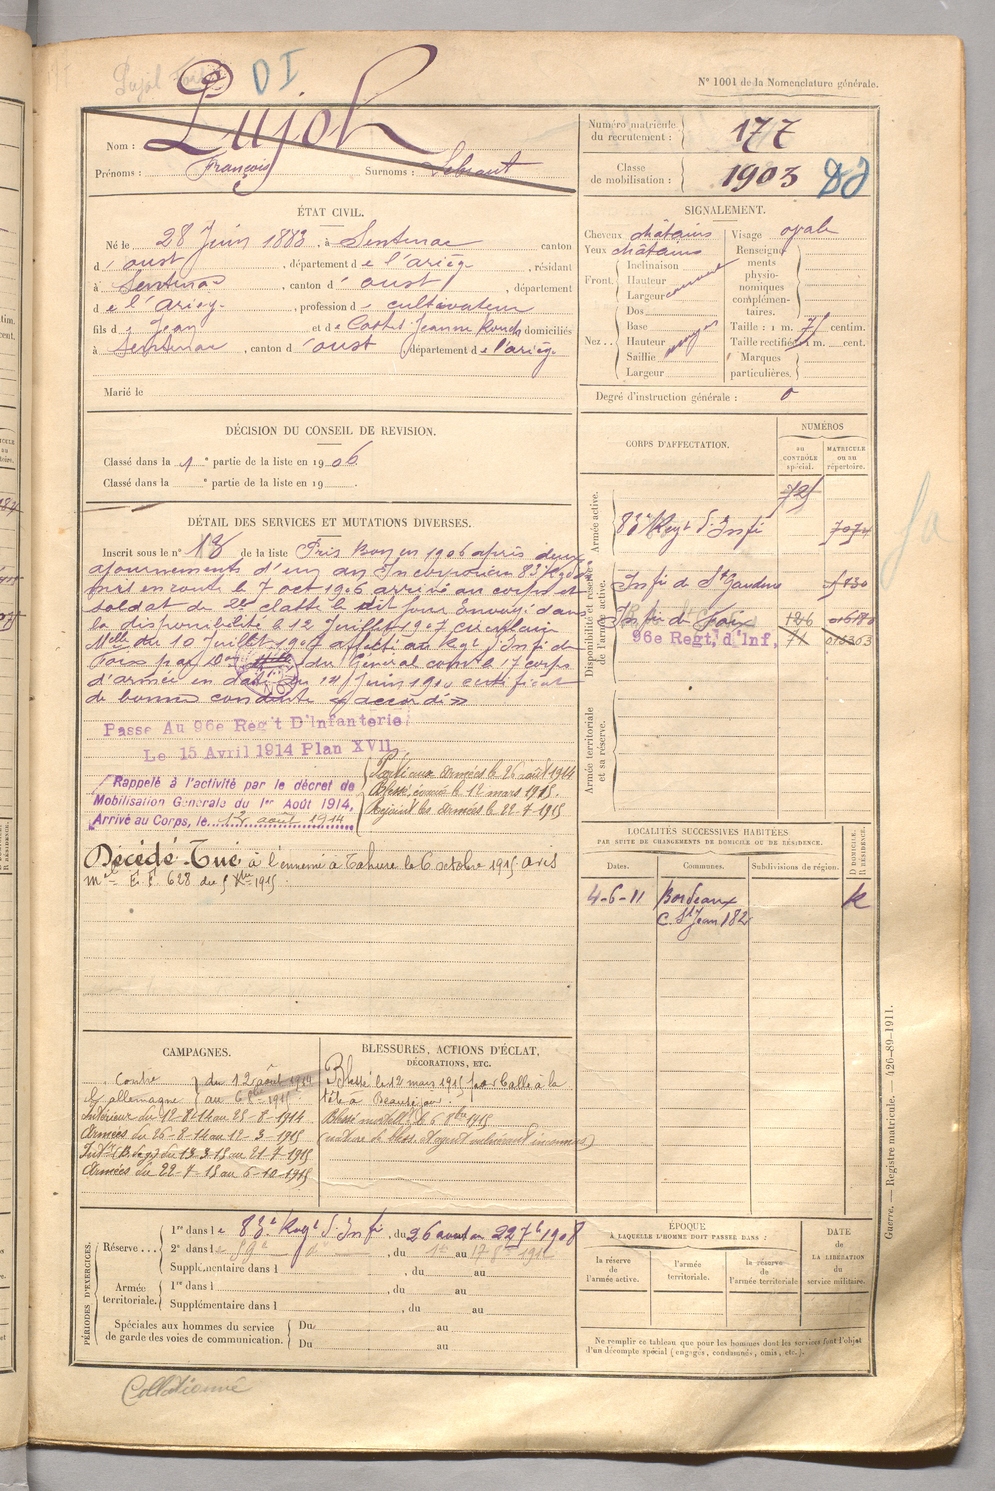 D I
N° 1001 de la Nomenclature générale.
Nom : Pujol
Prénoms : François Surnoms :
Numéro matricule du recrutement : 177
Classe de mobilisation : 1903
ÉTAT CIVIL.
Né le 28 Juin 1883, à Sentenac canton
d'oust, département de l'ariège, résidant
à Sentenac, canton d'oust, département
de l'ariège, profession de cultivateur
fils de Jean et de Castet Jeanne Rouch domiciliés
à Sentenac, canton d'oust, département de l'ariège
Marié le
SIGNALEMENT.
Cheveux châtains Visage ovale
Yeux châtains Renseignements physionomiques complémentaires.
Front. Inclinaison
Hauteur
Largeur
Nez. Dos
Base moyen
Hauteur
Saillie
Largeur
Taille : 1 m. 71 centim.
Taille rectifiée 1 m. cent.
Marques particulières.
Degré d'instruction générale : 0
DÉCISION DU CONSEIL DE REVISION.
Classé dans la 1e partie de la liste en 1906.
Classé dans la e partie de la liste en 19 .
DÉTAIL DES SERVICES ET MUTATIONS DIVERSES.
Inscrit sous le n° 18 de la liste Pris Bon en 1906 après deux
ajournements d'un an Incorporé au 83e Regt d'
mis en route le 7 oct 1906 arrivé au corps et
soldat de 2e classe le dit jour Envoyé dans
la disponibilité le 12 Juillet 1907 circulaire
Mlle du 10 Juillet 1907 affecté au Regt d'Infie de
Foix par du Général comt le 17 corps
d'armée en date du 14 Juin 1910 certificat
de bonne conduite « accordé »
Passé Au 96e Reg't D'Infanterie
Le 15 Avril 1914 Plan XVII
Rappelé à l'activité par le décret de
Mobilisation Générale du 1er Août 1914,
Arrivé au Corps, le 12 août 1914
Parti aux armées le 26 août 1914
Blessé, évacué le 12 mars 1915.
Rejoint les armées le 22-7-1915
Décédé Tué à l'ennemi à Tahure le 6 octobre 1915 avis
mel E. F. 628 du 5 Xbre 1915.
CORPS D'AFFECTATION.
NUMÉROS
AU CONTRÔLE spécial.
MATRICULE ou au répertoire.
Armée active.
83e Regt d'Infie
Disponibilité et réserve de l'armée active.
Infie de St Gaudens
Infie de Foix 126
96e Regt, d'Inf, 71
Armée territoriale et sa réserve.
LOCALITÉS SUCCESSIVES HABITÉES
PAR SUITE DE CHANGEMENTS DE DOMICILE OU DE RÉSIDENCE.
Dates. Communes. Subdivisions de région. D DOMICILE. R RÉSIDENCE.
4-6-11 Bordeaux R
C. St Jean 182
CAMPAGNES.
Contre l'allemagne du 12 août 1914
au 6 8bre 1915
Intérieur du 12-8-14 au 25-8-1914
Armées du 26-8-14 au 12-3-1915
Intr (B. de g.) du 13-3-15 au 21-7-1915
Armées du 22-7-15 au 6-10-1915
BLESSURES, ACTIONS D'ÉCLAT,
DÉCORATIONS, ETC.
Blessé le 12 mars 1915 par balle à la
tête à Beauséjour.
Blessé mortellt le 6 8bre 1915
(nature de bless. et agent vulnérant inconnus)
PÉRIODES D'EXERCICES.
Réserve... 1re dans le 83e Regt d'Infie, du 26 août au 22 7bre 1908
2e dans le , du 1er au
Supplémentaire dans l , du au
Armée territoriale. 1re dans l , du au
Supplémentaire dans l , du au
Spéciales aux hommes du service de garde des voies de communication. Du au
Du au
ÉPOQUE
À LAQUELLE L'HOMME DOIT PASSER DANS :
la réserve de l'armée active.
l'armée territoriale.
la réserve de l'armée territoriale
DATE de LA LIBÉRATION du service militaire.
Ne remplir ce tableau que pour les hommes dont les services font l'objet
d'un décompte spécial (engagés, condamnés, omis, etc.).
Guerre. — Registre matricule. — 426-89-1911.
Collationné